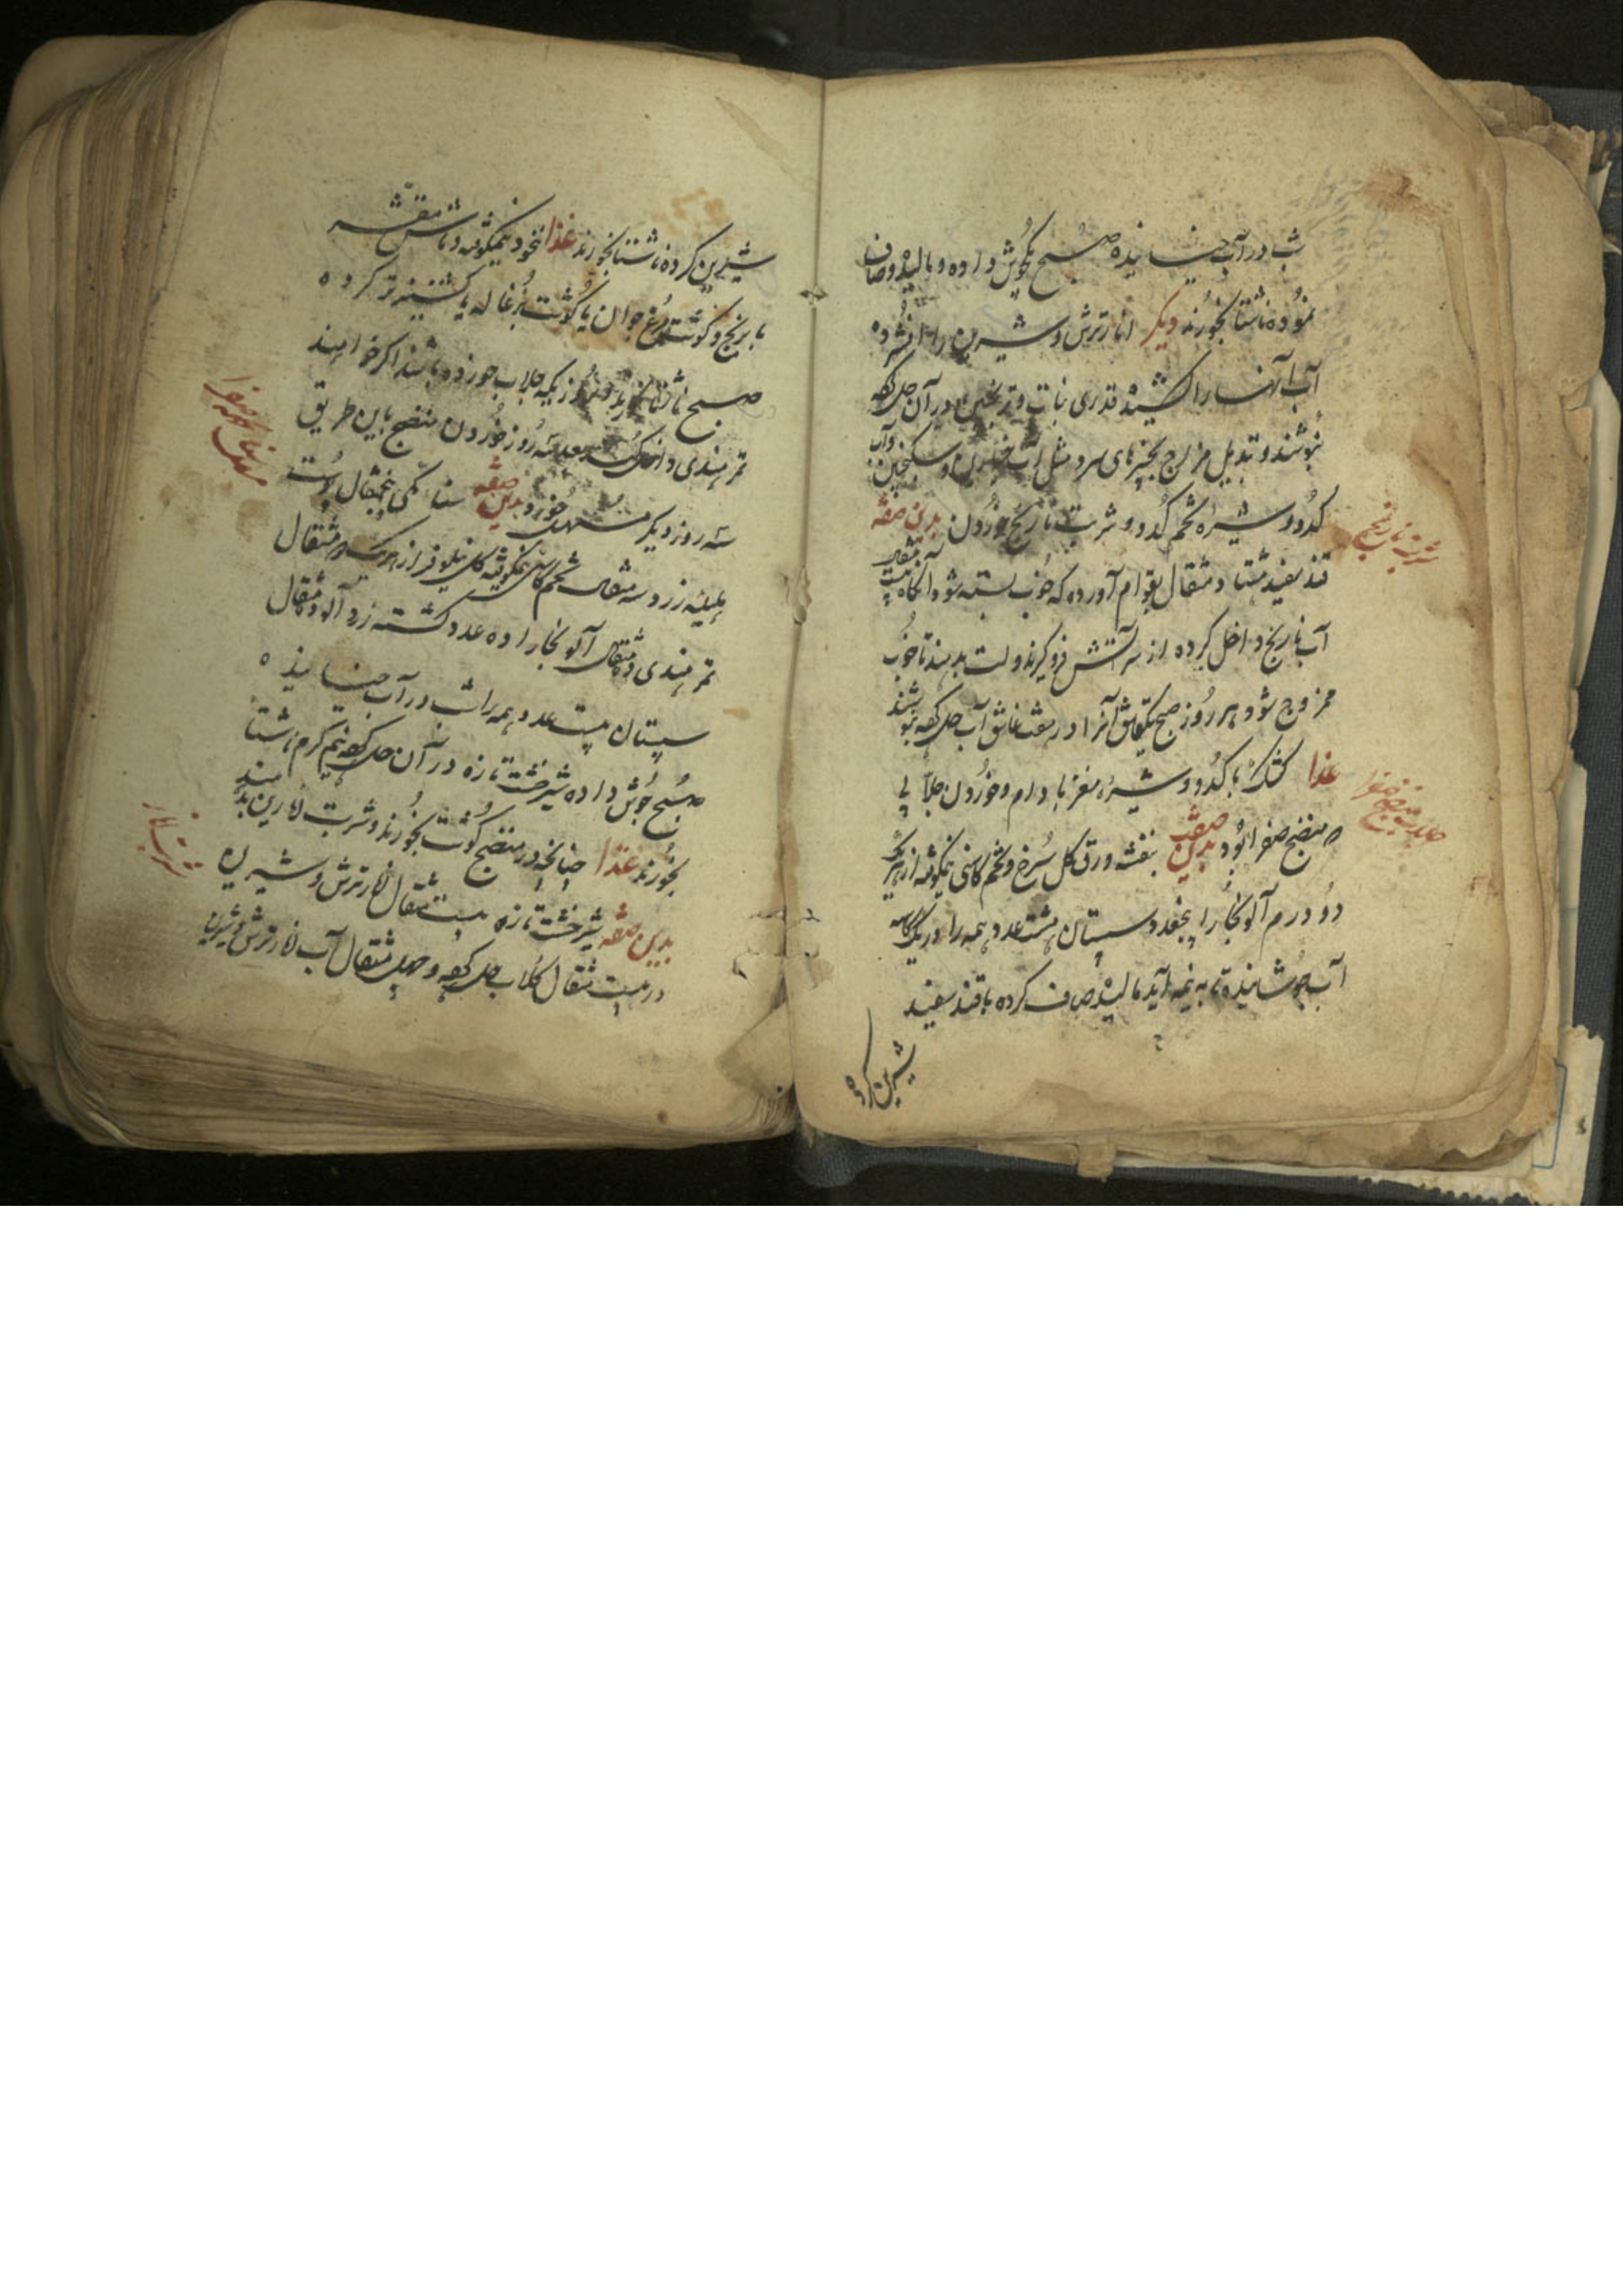 شب در آب خیسانیده صبح یکجوش داده و بالیده و صاف
نموده ناشتا بخورند دیگر انار ترش و شیرین را افشرده
آب آنها را کشیده قدری نبات و ترنجبین در آن حل کرده
بنوشند و تبدیل مزاج بچیزهای سرد مثل آب خیارین و سکنجبین و آب
کدو و شیره تخم کدو و شربت نارنج خوردن بدین صفه
شربت نارنج
قند سفید هشتاد مثقال بقوام آورده که خوب بسته شود آنگاه بیست مثقال
آب نارنج داخل کرده از سر آتش فرو گیرند و لت بدهند تا خوب
ممزوج شود و هر روز صبح یکقاشق آنرا در هفت قاشق آب حل کرده بنوشند
غذا کشک با کدو و شیره مغز بادام و خوردن جلابی
جلاب منضج صفرا
که منضج صفرا بود بدین صفت بنفشه ورق گل سرخ و تخم کاسنی نیمکوفته از هر یک
دو درم آلو بخارا پنجعدد سپستان هشت عدد همه را در یک کاسه
آب جوشانیده تا به نیمه آید مالیده صاف کرده با قند سفید
شیرین کرده
شیرین کرده ناشتا بخورند غذا نخود نیمکوفته و ماش مقشر
با برنج و گوشت مرغ جوان یا گوشت بزغاله با کشنیز تر کرده
صبح ناشتا روزیکه جلاب خورده باشند اگر خواهند
تمر هندی داخل کنند بعد سه روز خوردن منضج باین طریق
سه روز دیگر مسهل خورد بدین صفه سنا مکی پنجمثقال پوست
مسهل صفرا
هلیله زرد سه مثقال تخم کاسنی نیمکوفته گل نیلوفر از هر یک دو مثقال
تمر هندی ده مثقال آلو بخارا ده عدد کشته زرد آلو ده مثقال
سپستان بیست عدد همه را شب در آب خیسانیده
صبح جوش داده شیرخشت تازه در آن حل کرده نیم گرم ناشتا
بخورند غذا چنانچه در منضج گوشت بخورند و شربت نارین بدهند
شربت نارین
بدین صفه شیرخشت تازه بیست مثقال نار ترش و شیرین
در بیست مثقال گلاب حل کرده و چهل مثقال آب نار ترش و شیرین